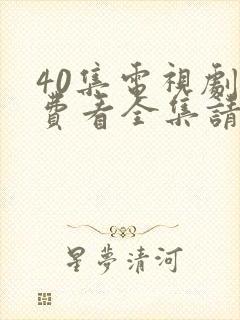 40集電視劇
費看全集請
星夢清河